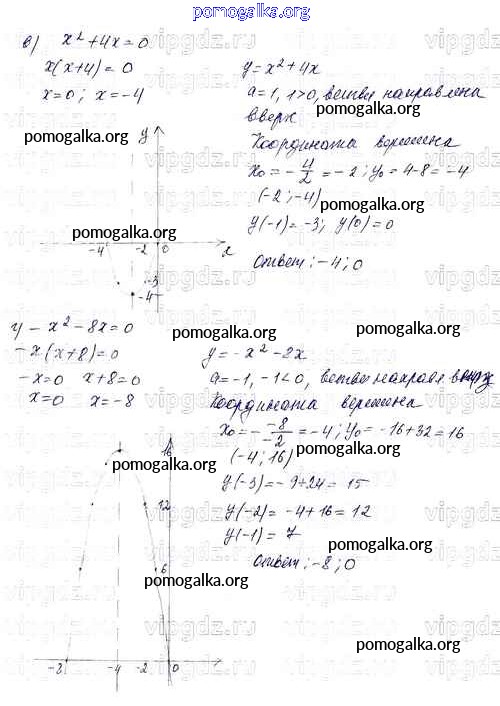 pomogalka.org
в) x² + 4x = 0
x(x+4) = 0
x=0; x=-4
y = x² + 4x
a=1, 1>0, ветви направлена
вверх
pomogalka.org
pomogalka.org
Координата вершина
x₀ = -4/2 = -2; y₀ = 4-8 = -4
(-2; -4)
pomogalka.org
y(-1) = -3; y(0) = 0
Ответ: -4; 0
y
-4 -2 0 x
pomogalka.org
-3
-4
г) -x² - 8x = 0
-x(x+8) = 0
-x=0 x+8=0
x=0 x=-8
pomogalka.org
y = -x² - 8x
a=-1, -1<0, ветви направл вниз
pomogalka.org
Координата вершина
x₀ = - -8/-2 = -4; y₀ = -16+32 = 16
(-4; 16)
pomogalka.org
y(-3) = -9+24 = 15
y(-2) = -4+16 = 12
y(-1) = 7
pomogalka.org
Ответ: -8; 0
16
12
6
pomogalka.org
-8 -4 -2 0
pomogalka.org
pomogalka.org